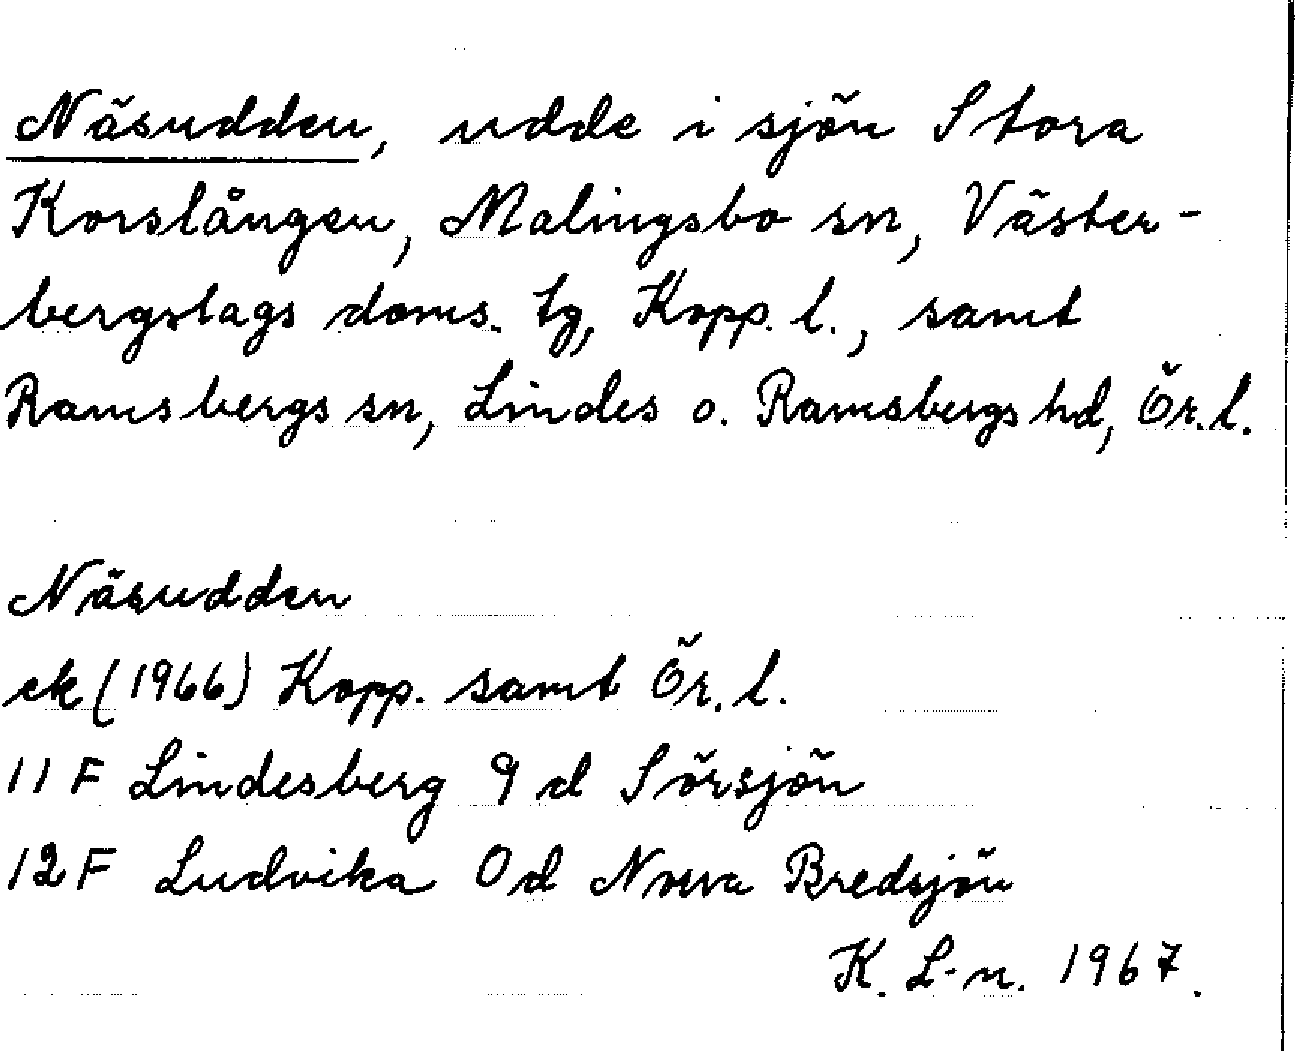 Näsudden, udde i sjön Stora
Korslången, Malingsbo sn, Väster-
bergslags doms. tg, Kopp. l., samt
Ramsbergs sn, Lindes o. Ramsbergs hd, Ör. l.
Näsudden
ek (1966) Kopp. samt Ör. l.
11 F Lindesberg 9 d Sörsjön
12 F Ludvika 0d Norra Bredsjön
K. L-n. 1967.